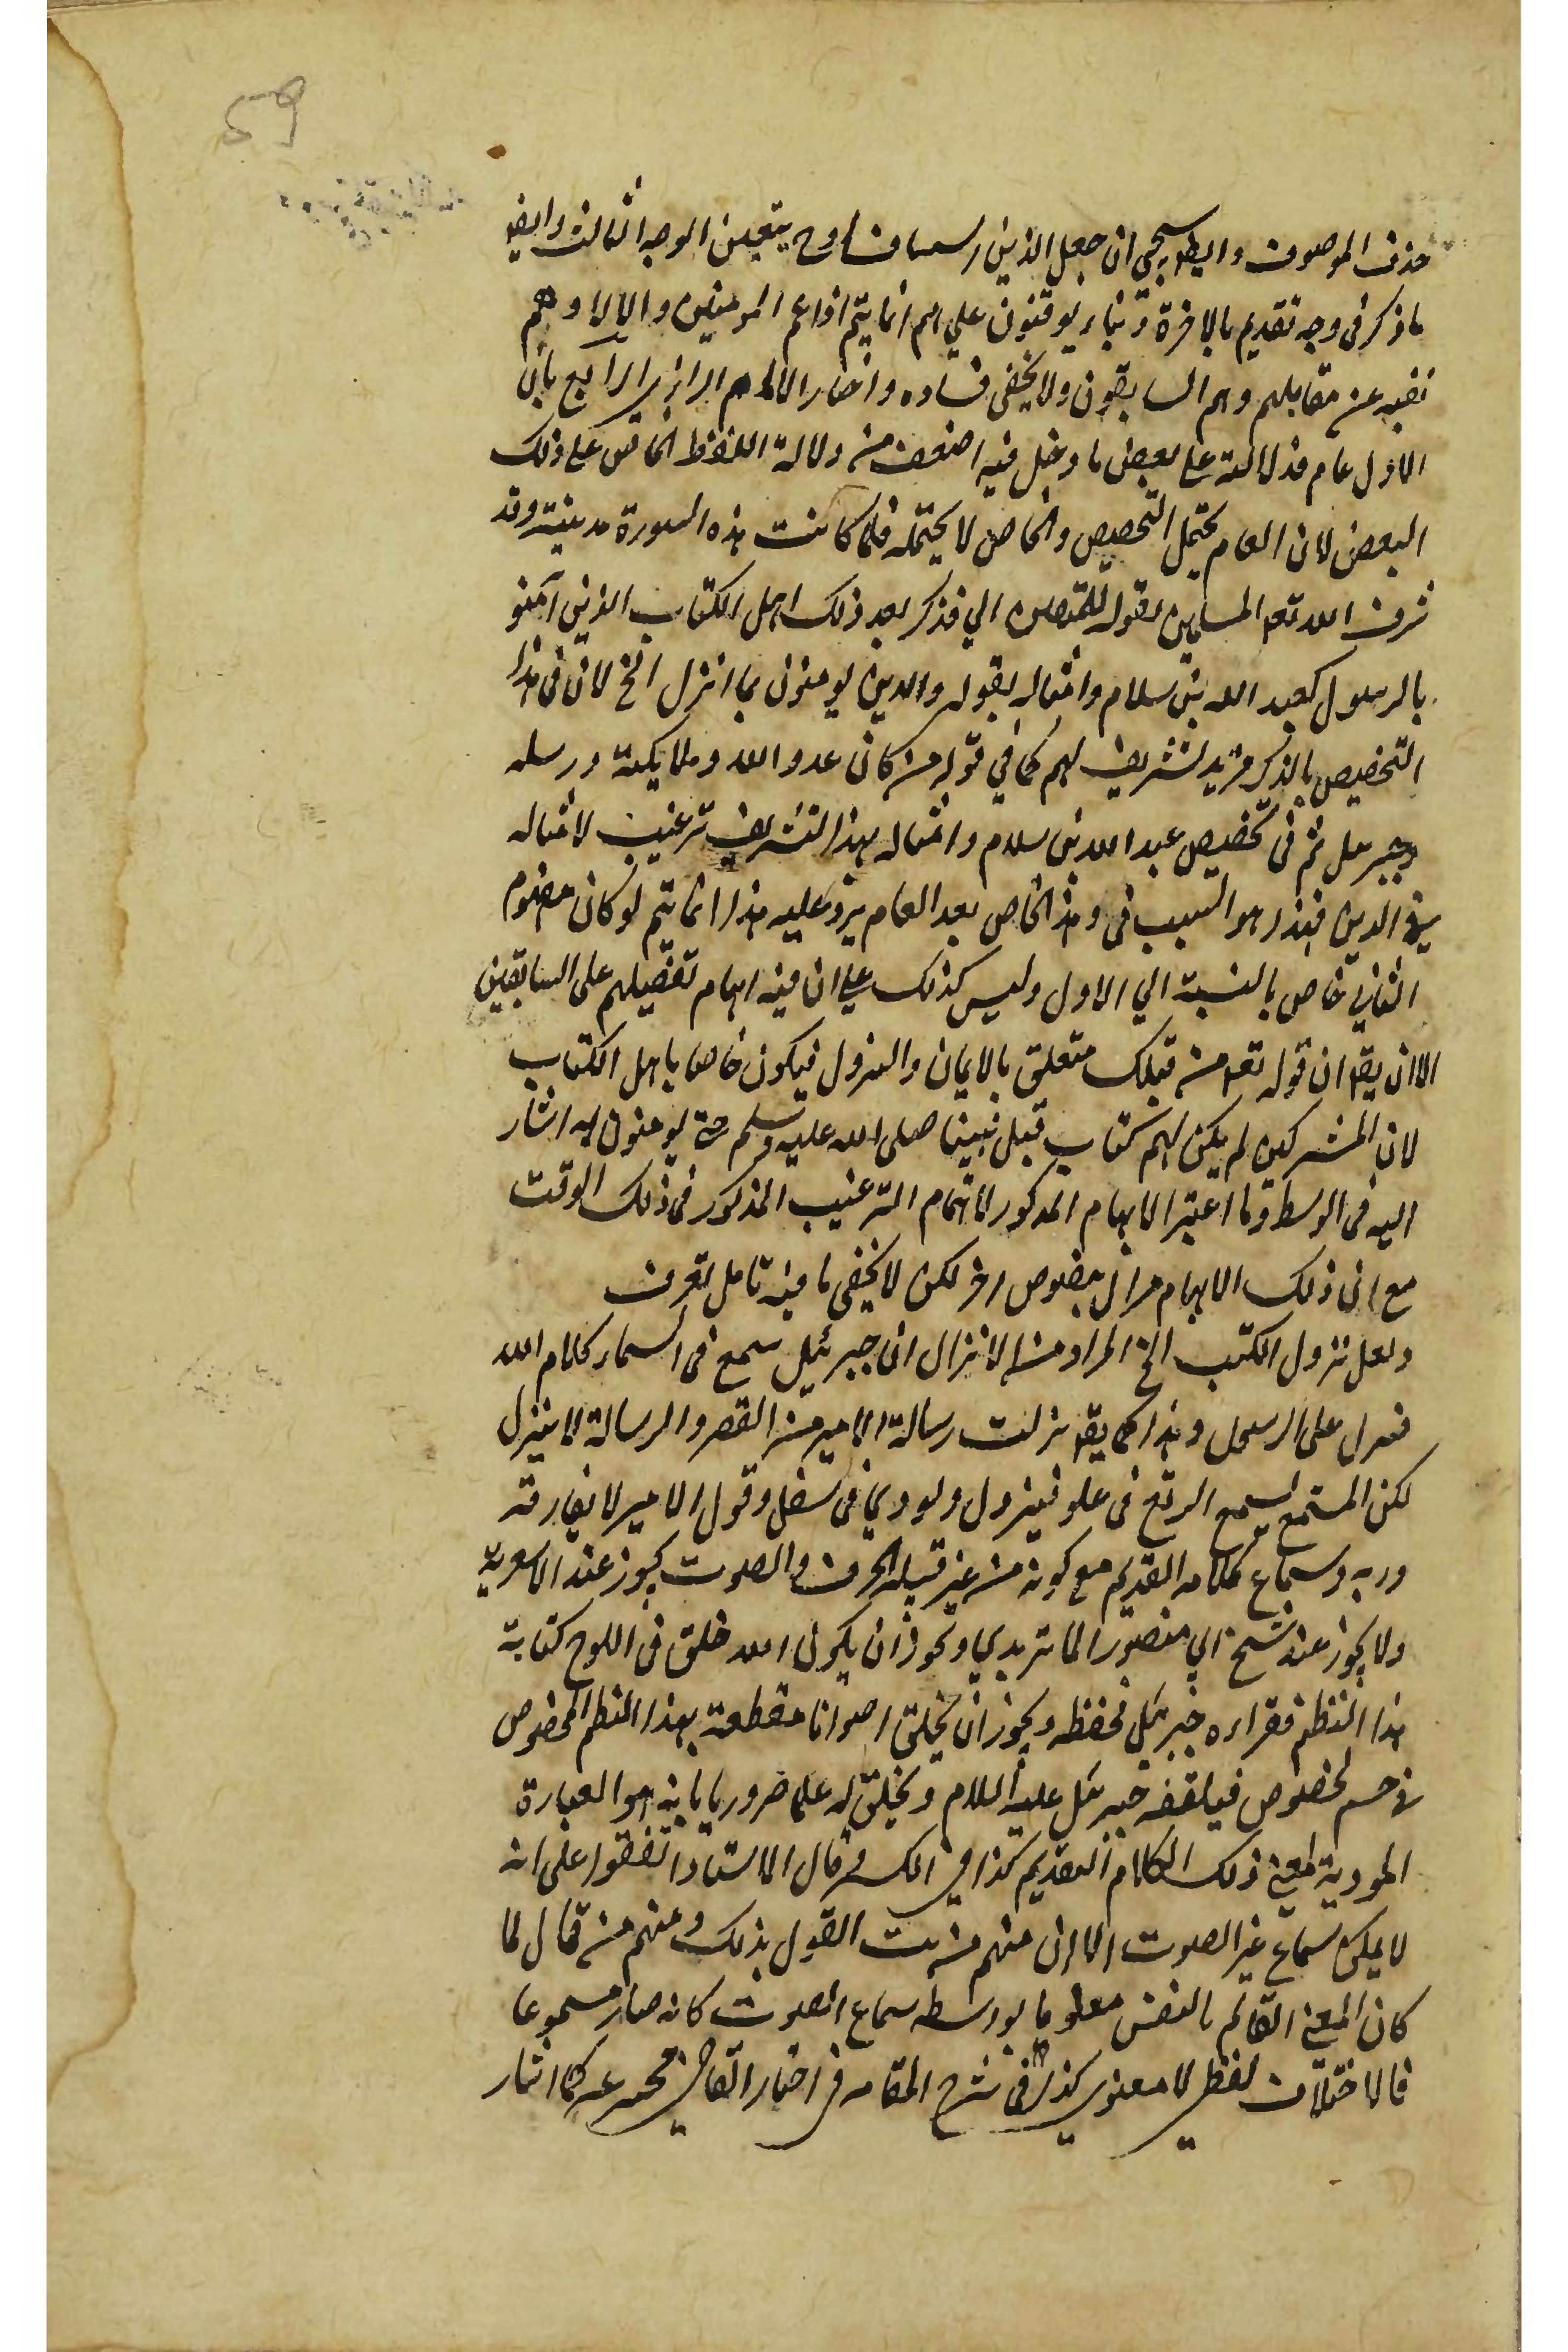 59
حذف الموصوف وايضا سيجى ان جعل الذين يتعين الوجه الثالث وايضا
ما ذكر فى وجه تقديم بالاخرة وبناء يوقنون على هم انما يتم اذا عم المؤمنين والا لا وهم
نفيه عن مقابلهم وهم السابقون ولا يخفى فساده واختار الامام الرازى الرابع بان
الاول عام فدلالته على بعض ما دخل فيه اضعف من دلالة اللفظ الخاص على ذلك
البعض لان العام يحتمل التخصيص والخاص لا يحتمله فلما كانت هذه السورة مدينية وقد
شرف الله تعه المسلمين بقوله للمتقين الي فذكر بعد ذلك اهل الكتاب الذين آمنو
بالرسول كعبد الله بن سلام وامثاله بقوله والذين يومنون بما انزل الخ لان فى هذا
التخصيص بالذكر مزيد تشريف لهم كما في قوله من كان عدو الله وملايكته ورسله
وجبريل ثم فى تخصيص عبد الله بن سلام وامثاله بهذا التشريف ترغيب لامثاله
فى الدين فهذا هو السبب فى ذكر الخاص بعد العام يرد عليه هذا انما يتم لو كان مفهوم
الثاني خاص بالنسبة الي الاول وليس كذلك على ان فيه ايهام تفضيلهم على السابقين
الا ان يقه ان قوله تعه من قبلك متعلق بالايمان والنزول فيكون خاصا باهل الكتاب
لان المشركين لم يكن لهم كتاب قبل نبينا صلى الله عليه وسلم حتى يومنون به اشار
اليه فى الوسط وما اعتبر الابهام المذكور لاتمام الترغيب المذكور فى ذلك الوقت
مع ان ذلك الابهام مزال بنصوص اخر لكن لا يخفى ما فيه تامل تعرف
ولعل نزول الكتب الخ المراد من الانزال ان جبرئيل سمع فى السماء كلام الله
فنزل على الرسول وهذا كما يقه نزلت رسالة الامير من القصر والرسالة لا ينزل
لكن المستمع يسمع الرقع فى علو فينزول ويودي فى سفل وقول الامير لا يفارقه
وربه وسماع كلامه القديم مع كونه من غير قبيلة الحرف والصوت يجوز عند الاشعرية
ولا يجوز عند شيخ ابي منصور الماتريدي وتجوز ان يكون الله خلق فى اللوح كتابة
هذا النظم فقراءه جبرئيل فحفظه ويجوز ان يخلق اصواتا مقطعة بهذا النظم المخصوص
فى جسم مخصوص فيلقفه جبرئيل عليه السلام ويخلق له علما ضروريا بانه هو العبارة
المودية لمعنى ذلك الكلام القديم كذا في قال الاستاد اتفقوا على انه
لا يمكن سماع غير الصوت الا ان منهم من بت القول بذلك ومنهم من قال لما
كان المعنى القائم بالنفس معلوما بواسطه سماع الصوت كانه صار مسموعا
فالاختلاف لفظى لا معنوي كذا فى شرح المقاصد فى اختار القاضى كما اشار